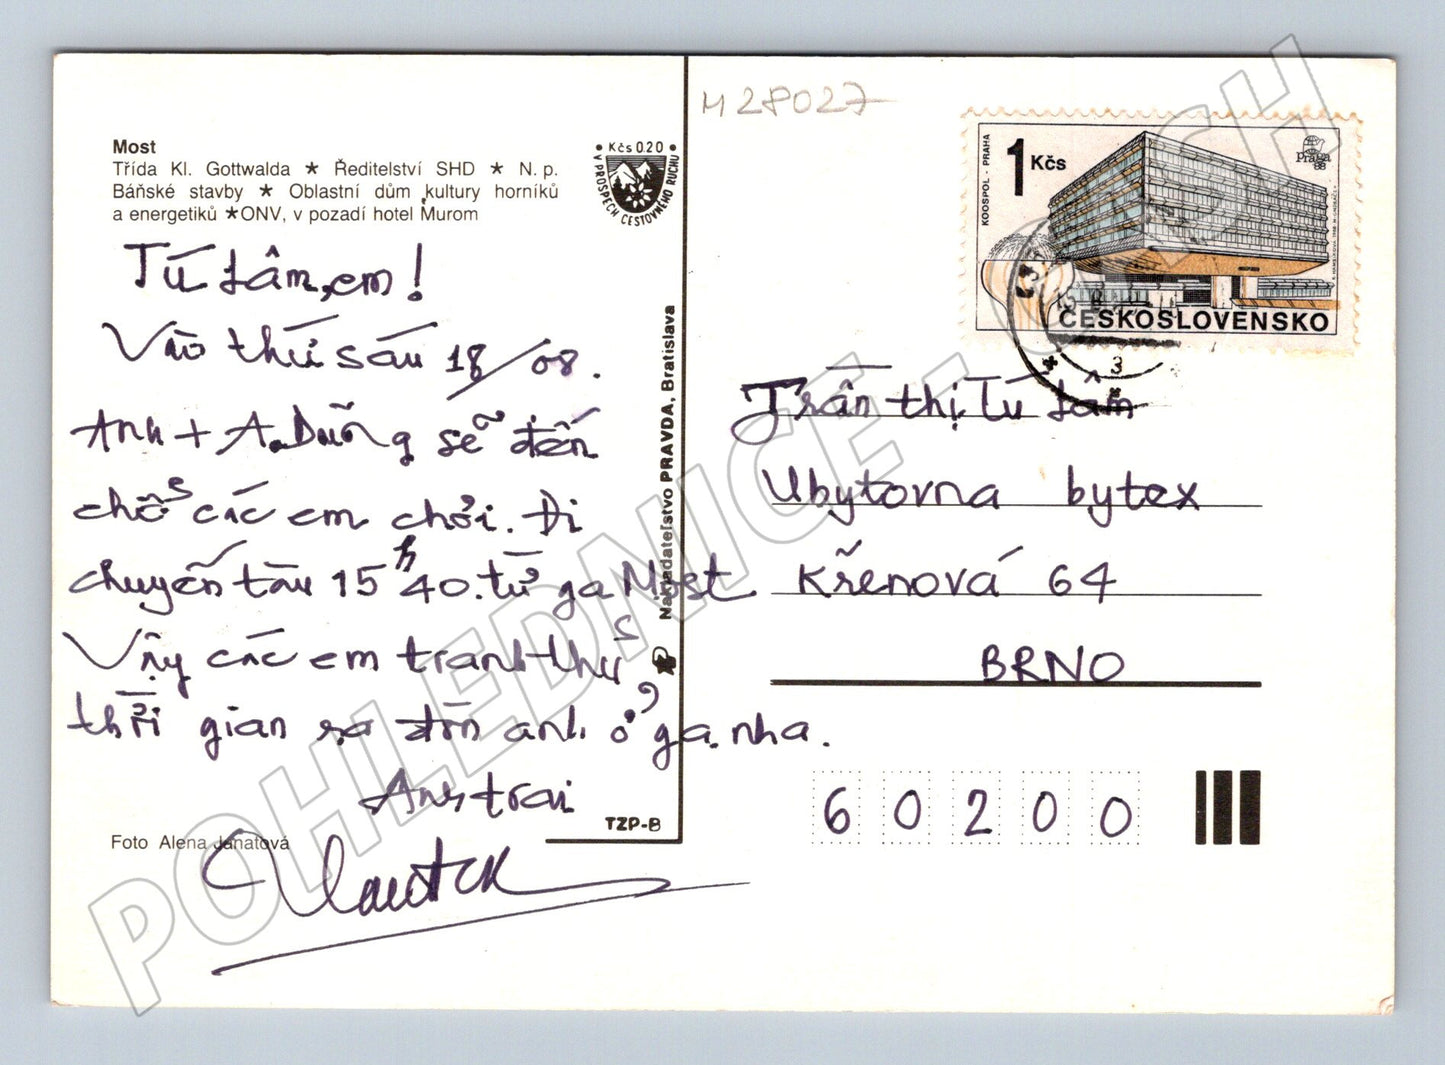 M 28027
Most
Třída Kl. Gottwalda ★ Ředitelství SHD ★ N. p.
Báňské stavby ★ Oblastní dům kultury horníků
a energetiků ★ ONV, v pozadí hotel Murom
Kčs 0.20
V PROSPĚCH CESTOVNÉHO RUCHU
Tú tâm, em!
Vào thứ sáu 18/08.
Anh + A. Dũng sẽ đến
chỗ các em chơi. Đi
chuyến tàu 15h40. từ ga Most
Vậy các em tranh thủ
thời gian ra đón anh ở ga nha.
Anh trai
Foto Alena Janatová
TZP-B
Nakladateľstvo PRAVDA, Bratislava
KOOSPOL - PRAHA
1 Kčs
Praga
88
ČESKOSLOVENSKO
3
Trần thị Tú tâm
Ubytovna bytex
Křenová 64
BRNO
60200
POHLEDNICE - CECH